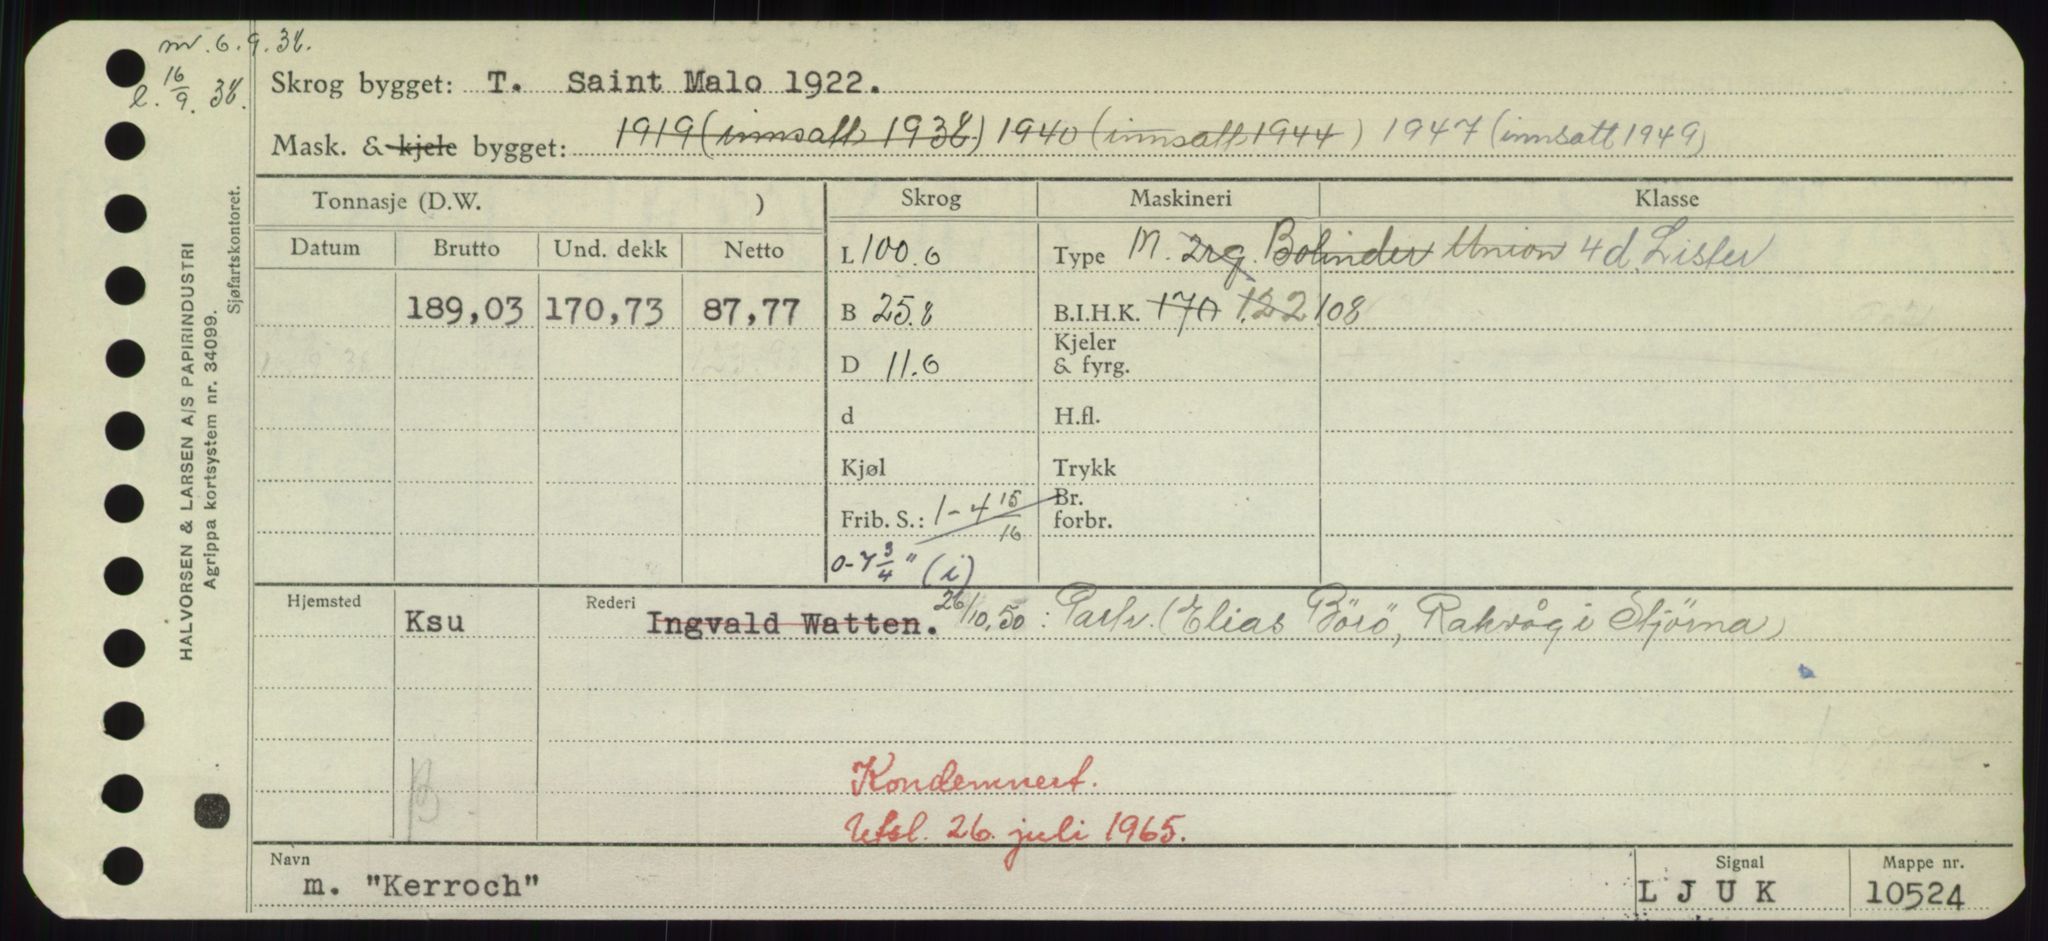 m. 6.9.38.
e. 16/9. 38.
Skrog bygget: T. Saint Malo 1922.
Mask. & kjele bygget: 1919 (innsatt 1938) 1940 (innsatt 1944) 1947 (innsatt 1949)
Tonnasje (D.W. ) Skrog Maskineri Klasse
Datum Brutto Und. dekk Netto L 100.6 Type M. 2rg. Bolinder Union 4d. Lister
189,03 170,73 87,77 B 25.8 B.I.H.K. 170 122 108
D 11.6 Kjeler & fyrg.
d H.fl.
Kjøl Trykk
Frib. S.: 1-4 15/16 Br. forbr.
0-7 3/4 " (i)
Hjemsted Ksu Rederi Ingvald Watten. 26/10.50: Partr. (Elias Börö, Rakvåg i Stjörna)
Kondemnert.
Utsl. 26. juli 1965.
Navn Signal Mappe nr.
m. "Kerroch" L J U K 10524
HALVORSEN & LARSEN A/S PAPIRINDUSTRI
Agrippa kortsystem nr. 34099.
Sjøfartskontoret.